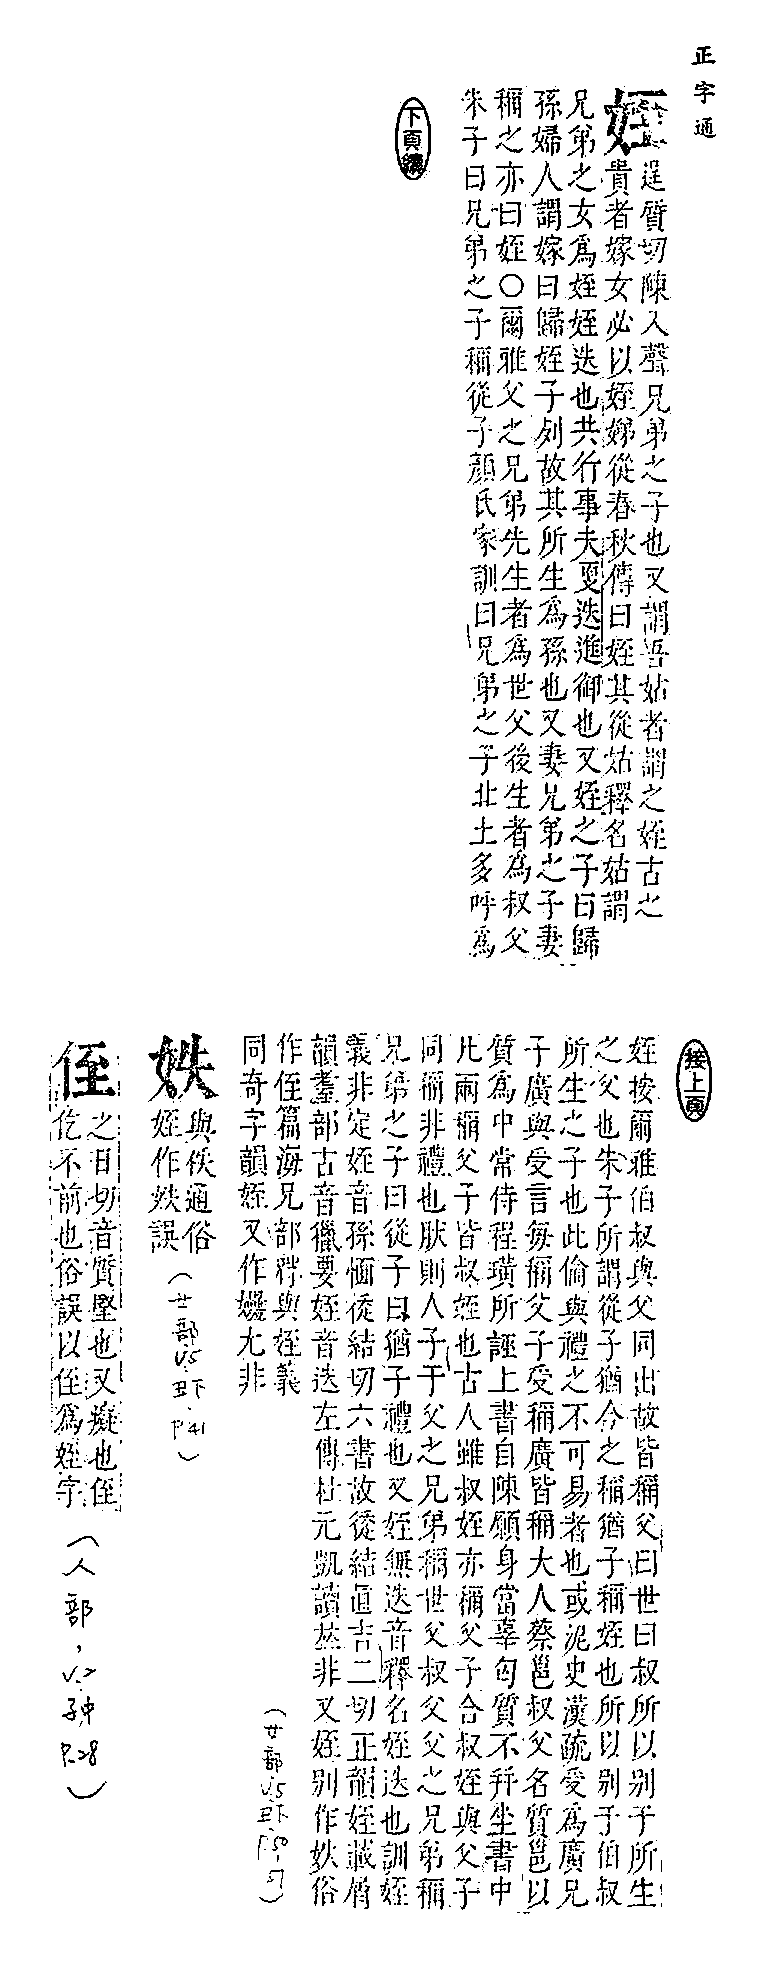 正字通
姪
逞質切陳入聲兄弟之子也又謂吾姑者謂之姪古之
貴者嫁女必以姪娣從春秋傳曰姪其從姑釋名姑謂
兄弟之女爲姪姪迭也共行事夫更迭進御也又姪之子曰歸
孫婦人謂嫁曰歸姪子列故其所生爲孫也又妻兄弟之子妻
稱之亦曰姪○爾雅父之兄弟先生者爲世父後生者爲叔父
朱子曰兄弟之子稱從子顏氏家訓曰兄弟之子北土多呼爲
下頁續
接上頁
姪按爾雅伯叔與父同出故皆稱父曰世曰叔所以別于所生
之父也朱子所謂從子猶今之稱猶子稱姪也所以別于伯叔
所生之子也此倫與禮之不可易者也或泥史漢疏受爲廣兄
子廣與受言每稱父子受稱廣皆稱大人蔡邕叔父名質邕以
質爲中常侍程璜所誣上書自陳願身當辜匄質不幷坐書中
凡兩稱父子皆叔姪也古人雖叔姪亦稱父子合叔姪與父子
同稱非禮也肰則人子于父之兄弟稱世父叔父父之兄弟稱
兄弟之子曰從子曰猶子禮也又姪無迭音釋名姪迭也訓姪
義非定姪音孫愐徒結切六書故徒結直吉二切正韻姪藏屑
韻耋部古音獵要姪音迭左傳杜元凱讀垤非又姪別作妷俗
作侄篇海兄部𥠖與姪義
同奇字韻姪又作㜼尢非
(女部V5 丑下 P50,51)
妷
與佚通俗
姪作妷誤
(女部V5 丑下 P41)
侄
之日切音質堅也又癡也侄
仡不前也俗誤以侄爲姪字
(人部,V2 子中 P.28)